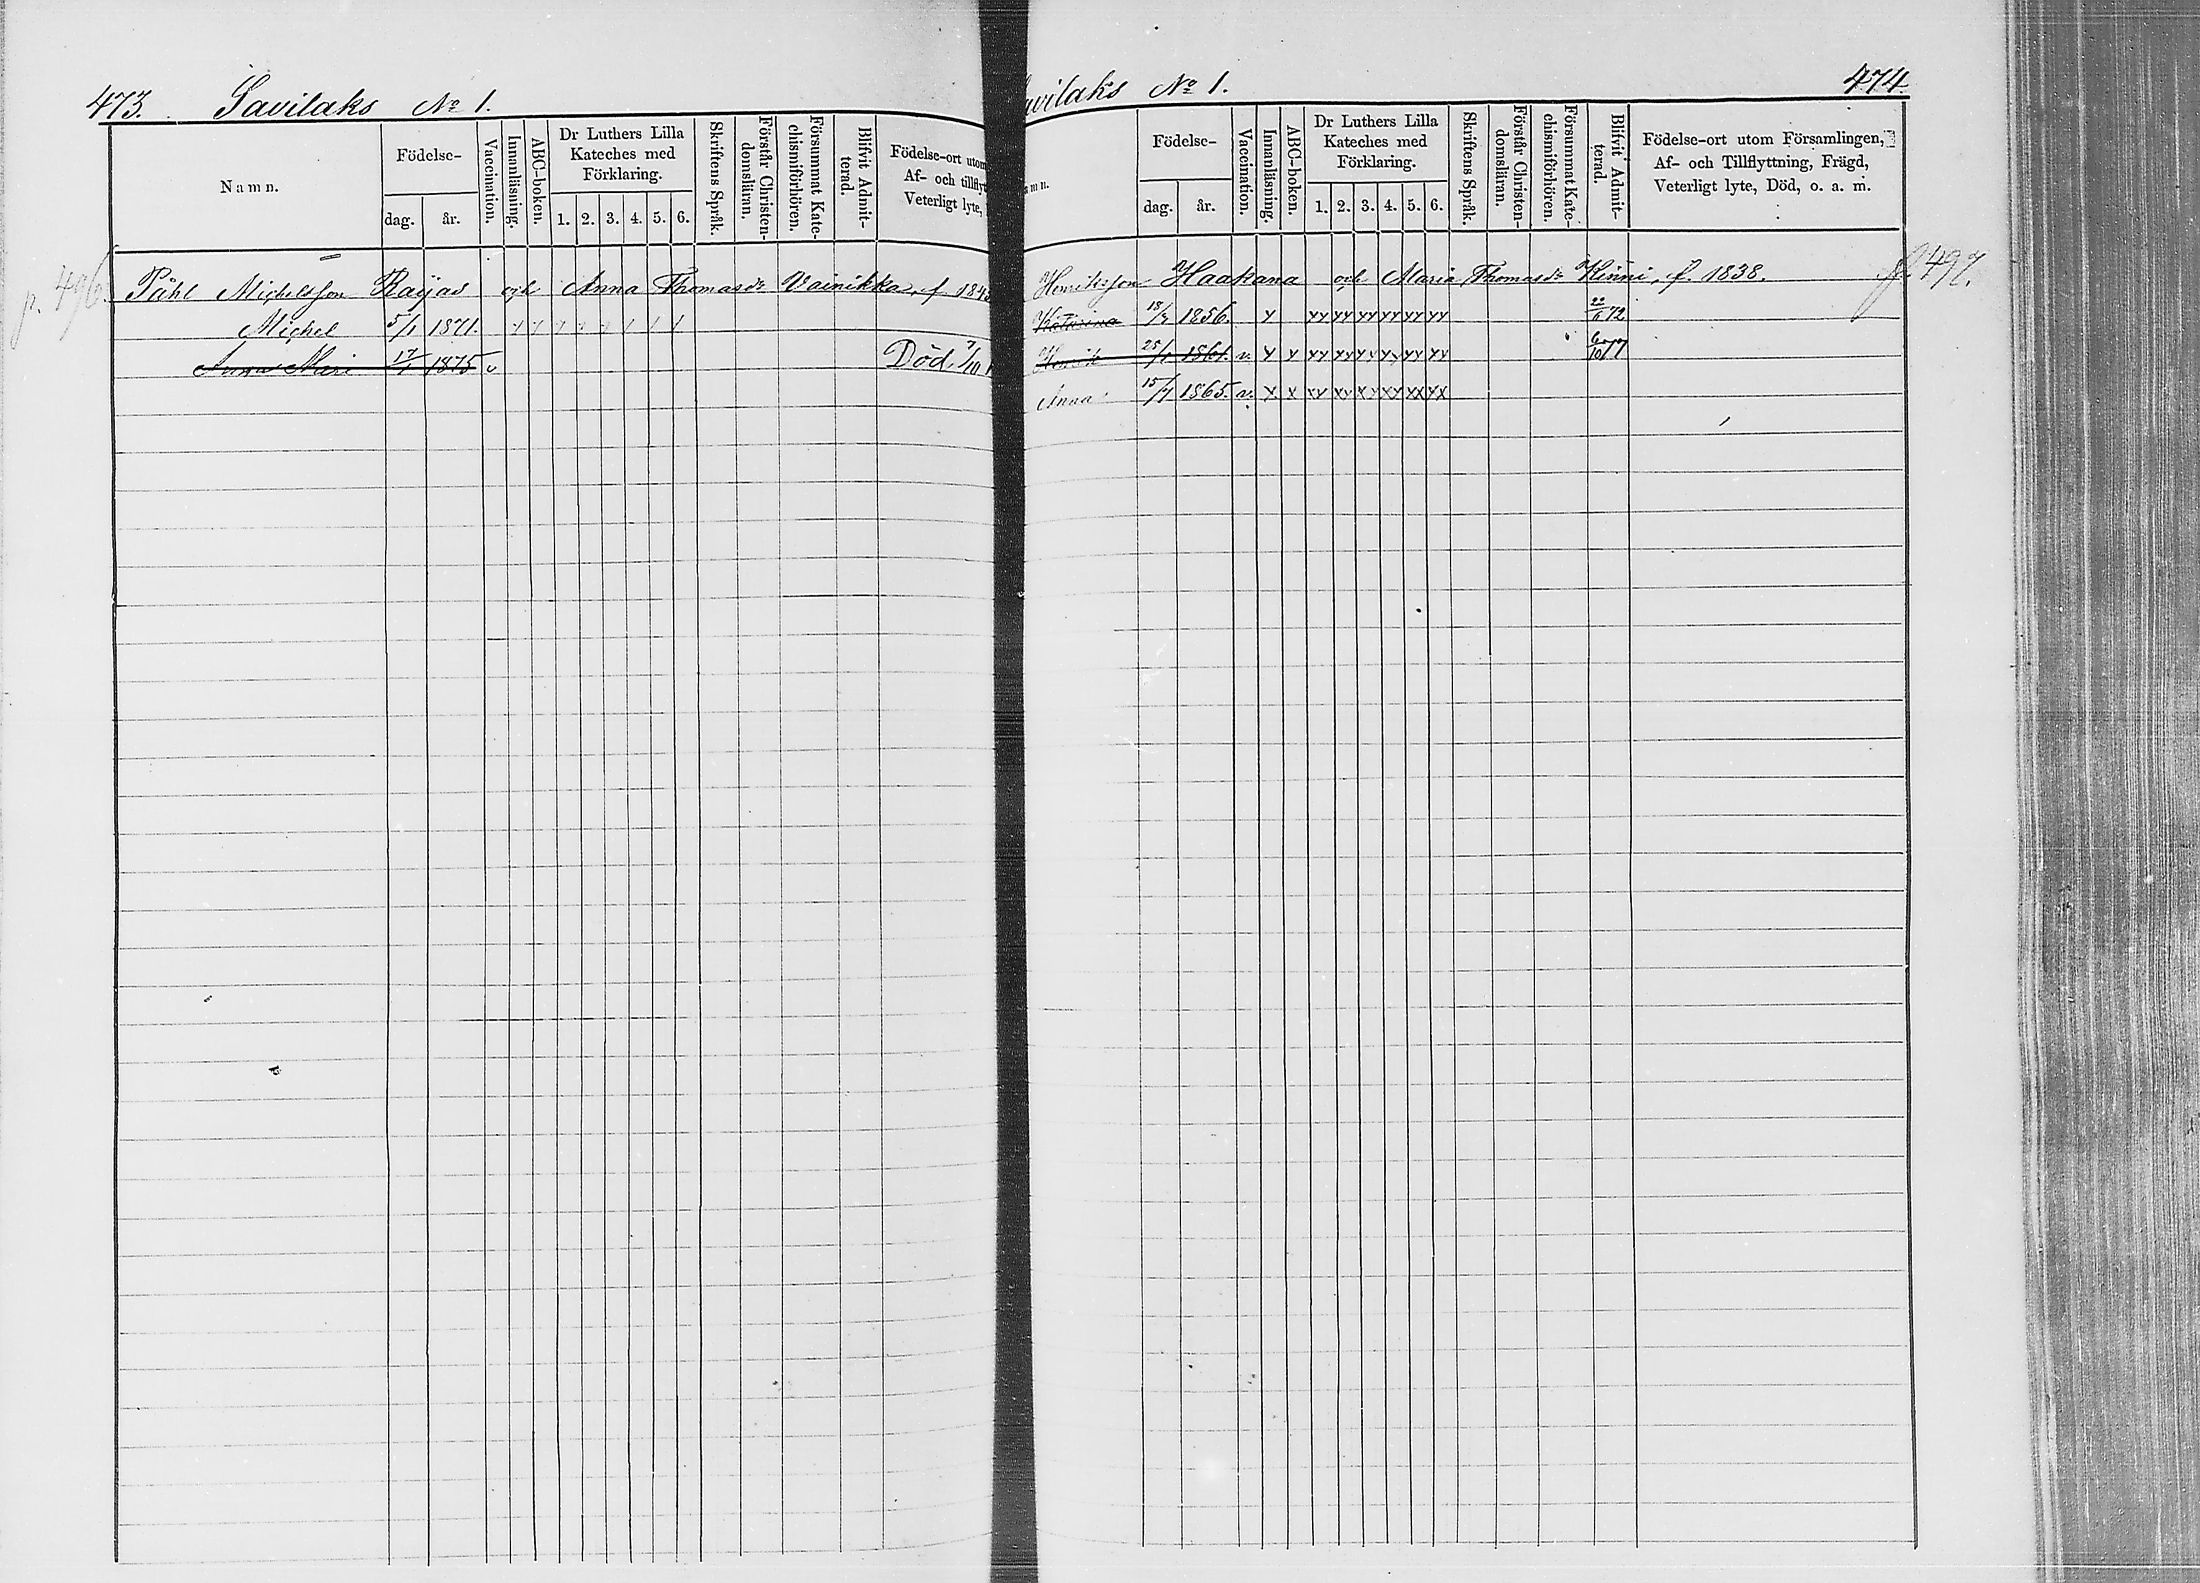 473. Savilaks No 1.
Namn.
Födelse-
dag.
år.
Vaccination.
Innanläsning.
ABC-boken.
Dr Luthers Lilla
Kateches med
Förklaring.
1. 2. 3. 4. 5. 6.
Skriftens Språk.
Förstår Christen-
domsläran.
Försummat Kate-
chismiförhören.
Blifvit Admit-
terad.
Födelse-ort utom
Af- och tillflyt
Veterligt lyte,
p. 496.
Påhl Michelsson Rayas och Anna Thomasdr Vainikka, f. 184
Michel 5/1 1871.
Anna Mari 17/1 1875 v Död 7/10
avilaks No 1. 474.
mn.
Födelse-
dag.
år.
Vaccination.
Innanläsning.
ABC-boken.
Dr Luthers Lilla
Kateches med
Förklaring.
1. 2. 3. 4. 5. 6.
Skriftens Språk.
Förstår Christen-
domsläran.
Försummat Kate-
chismiförhören.
Blifvit Admit-
terad.
Födelse-ort utom Församlingen,
Af- och Tillflyttning, Frägd,
Veterligt lyte, Död, o. a. m.
Henriksson Haakana och Maria Thomasdr Kinni, f. 1838. p. 497.
Katarina 18/7 1856. x xx xx xx xx xx xx 22/6 72
Henrik 25/1 1861. v. x x xx xx xx xx xx xx 6/10 77
Anna 15/7 1865. v. x x xx xx xx xx xx xx